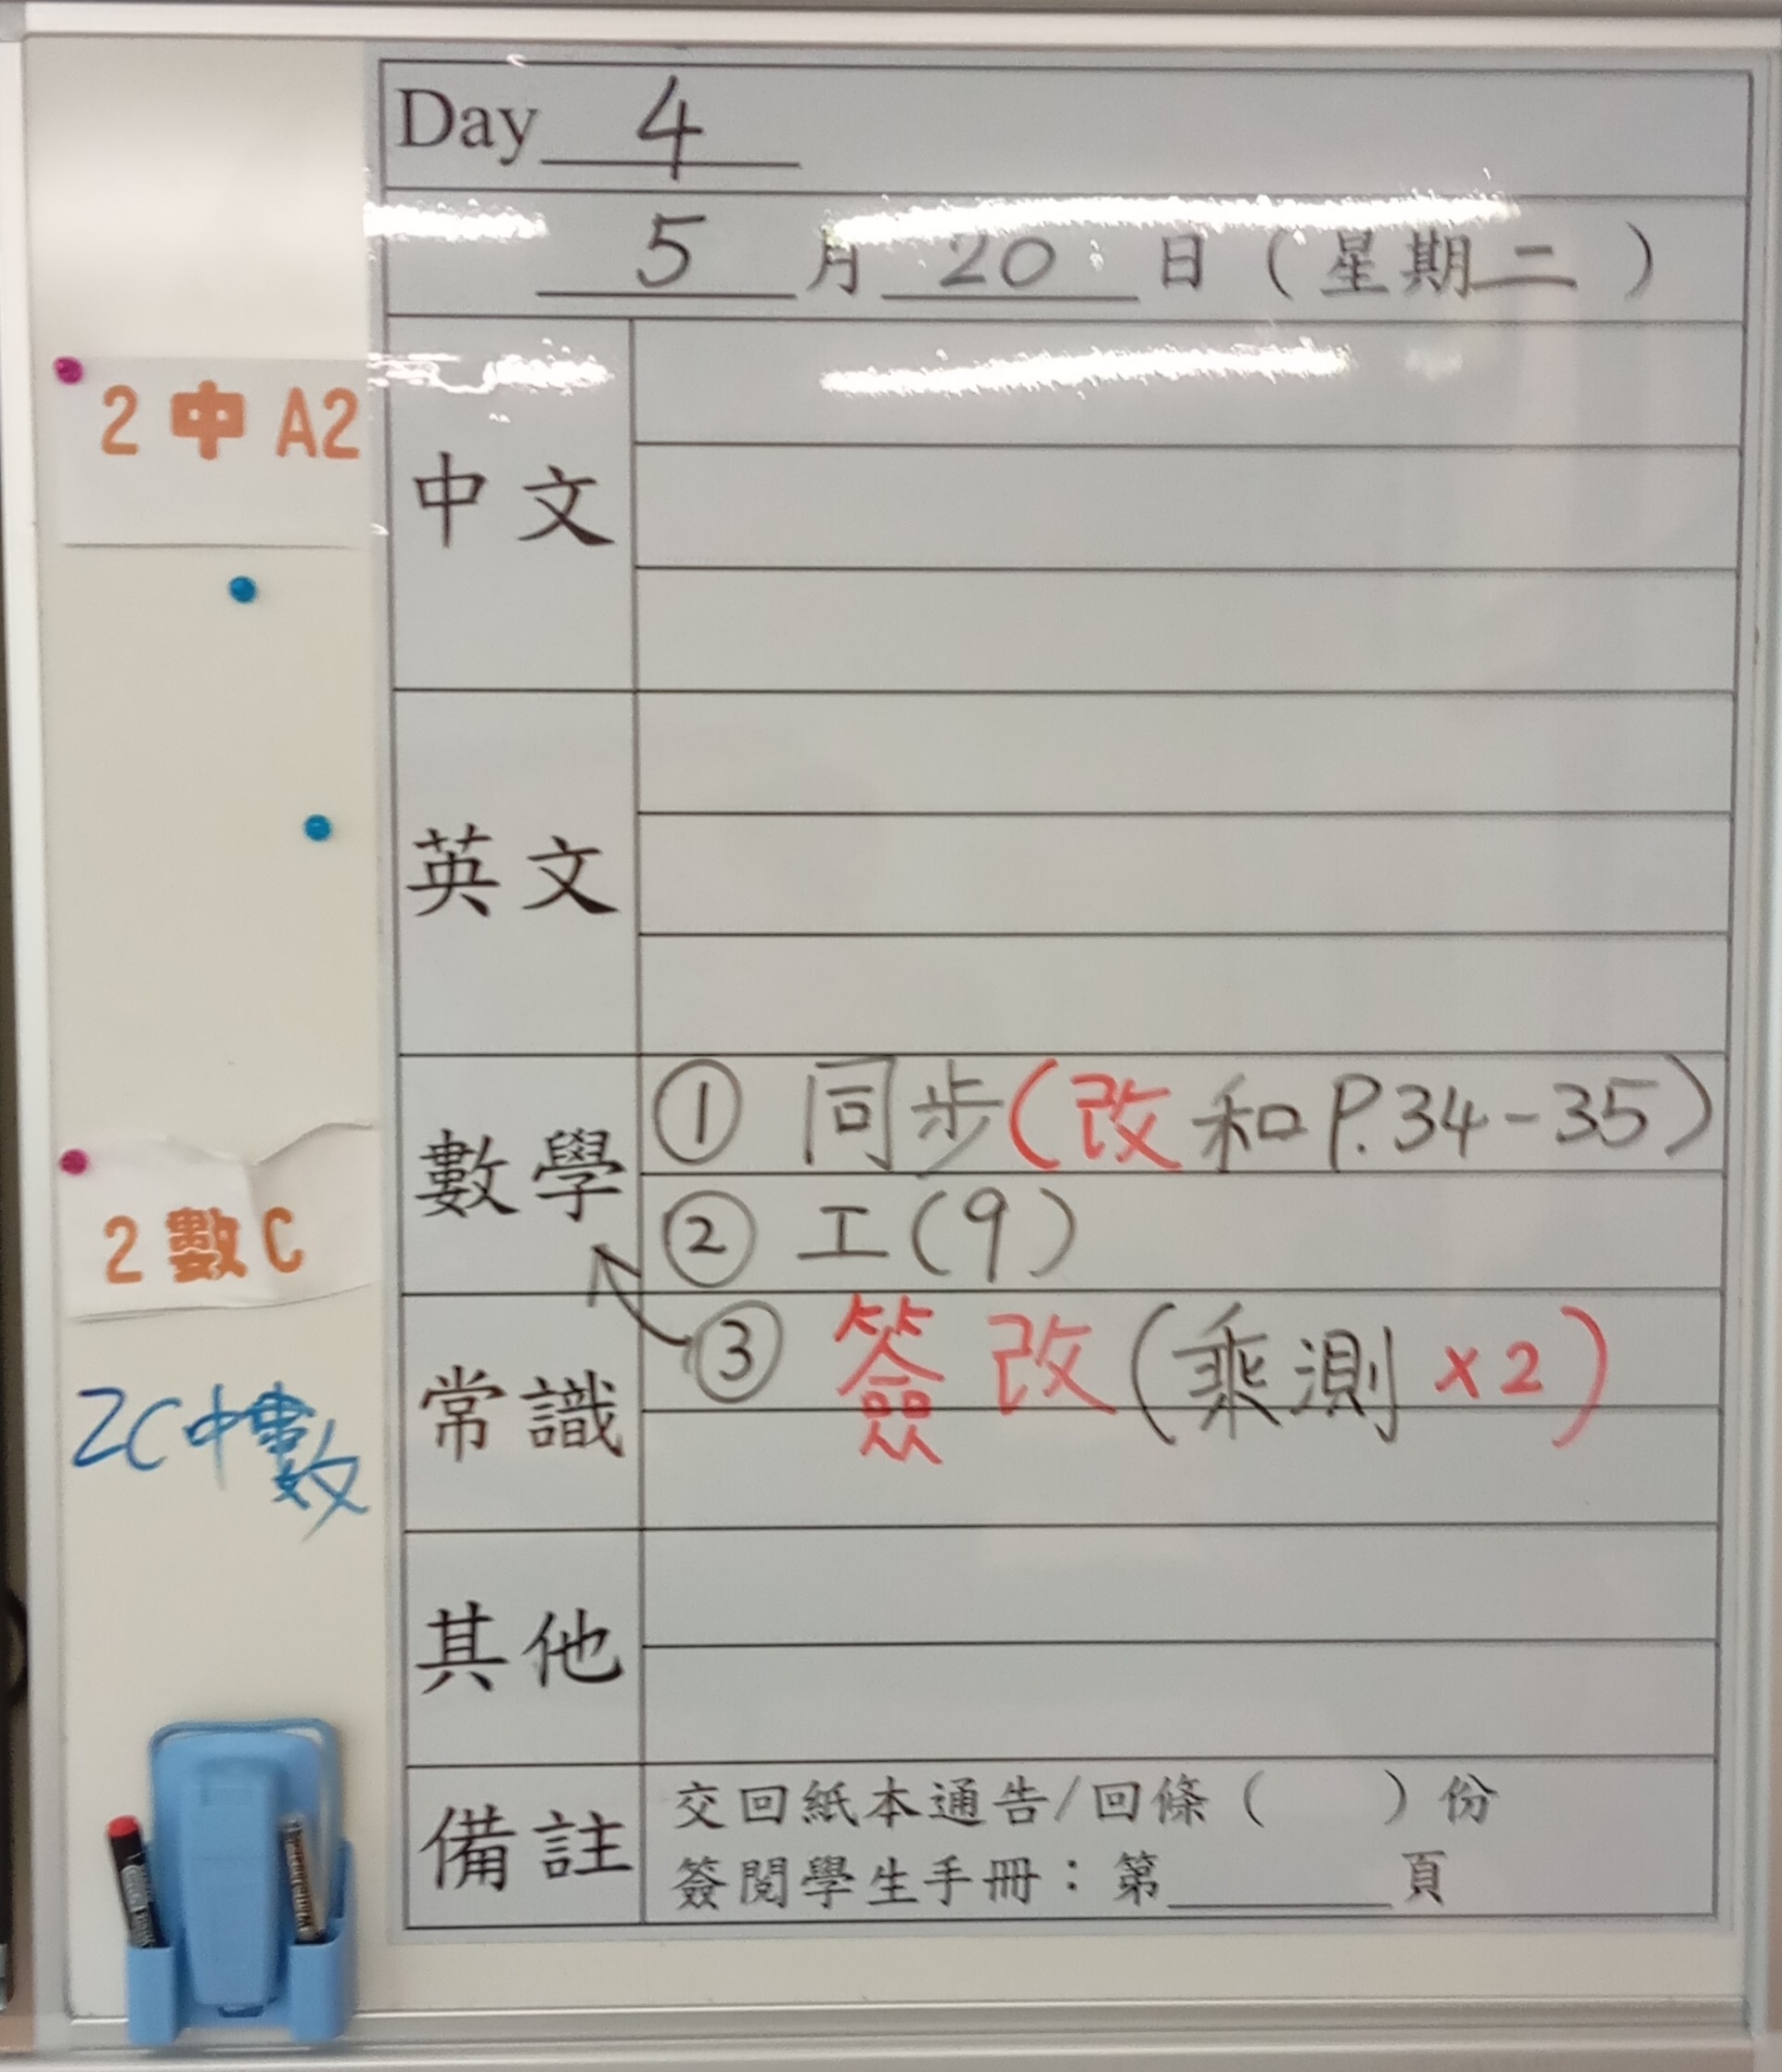 Day 4
5月20日(星期二)
2中A2
中文
英文
數學
① 同步(改和P.34-35)
② 工(9)
2數C
常識
③ 簽改(乘測x2)
2C中數
其他
備註
交回紙本通告/回條( )份
簽閱學生手冊：第____頁